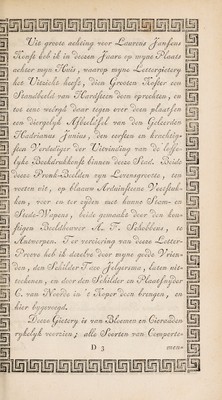 Uit groote achting voor Laurens Jansens
Konst heb ik in deezen Jaare op myne Plaats
achter myn Huis, waarop myne Lettergietery
het Uitzicht heeft, dien Grooten Koster een
Standbeeld van Hardsteen doen oprechten, en
tot eene weêrgâ daar tegen over doen plaatsen
een diergelyk Afbeeldsel van den Geleerden
Hadrianus Junius, den eersten en krachtig-
sten Verdediger der Uitvinding van de loffe-
lyke Boekdrukkonst binnen deeze Stad. Beide
deeze Pronk-Beelden zyn Levensgroote, tien
voeten uit, op blaauw Arduinsteene Voetstuk-
ken, voor en ter zyden met hunne Stam- en
Stede-Wapens, beide gemaakt door den kon-
stigen Beeldhouwer A. F. Schobbens, te
Antwerpen. Ter versiering van deeze Letter-
Proeve heb ik dezelve door myne goede Vrien-
den, den Schilder Taco Jelgersma, laten uit-
teekenen, en door den Schilder en Plaatsnyder
C. van Noorde in 't Koper doen brengen, en
hier bygevoegd.
Deeze Gietery is van Bloemen en Cieraaden
rykelyk voorzien; alle Soorten van Comparte-
D 3
men-